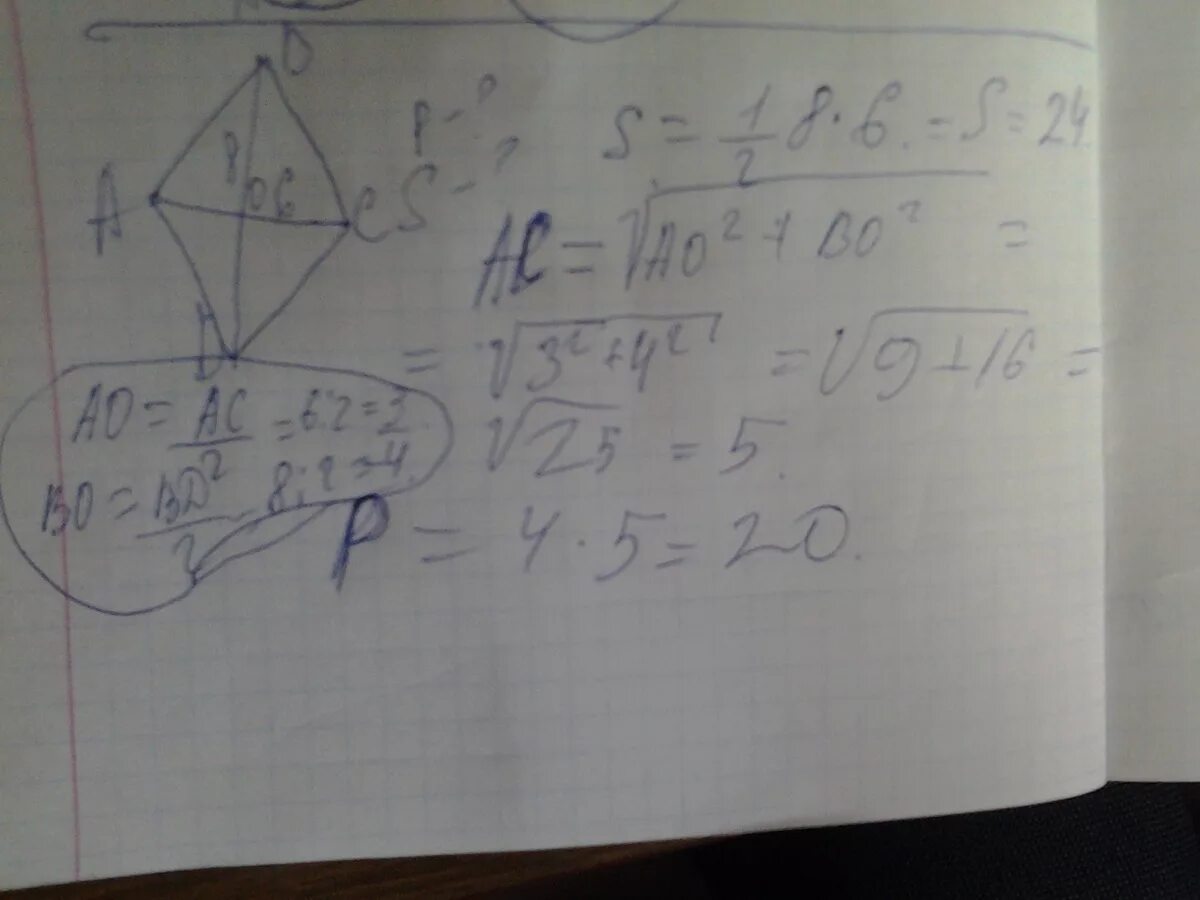 B
8
O 6
A
C
D
P - ?
S - ?
S = 1/2 8 · 6. = S = 24.
AC = √AO² + BO² =
= √3² + 4² = √9 + 16 =
√25 = 5.
P = 4 · 5 = 20.
AO = AC/2 = 6:2 = 3.
BO = BD/2 8:2 = 4.